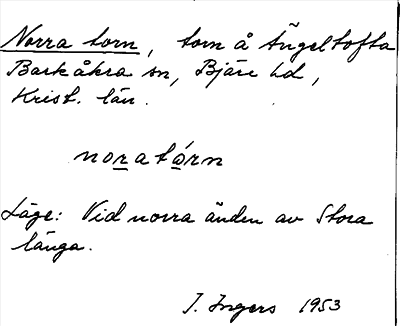 Norra torn, torn å Ängeltofta
Barkåkra sn, Bjäre hd,
Krist. län.
noratórn
Läge: Vid norra änden av Stora
länga.
I. Ingers 1953